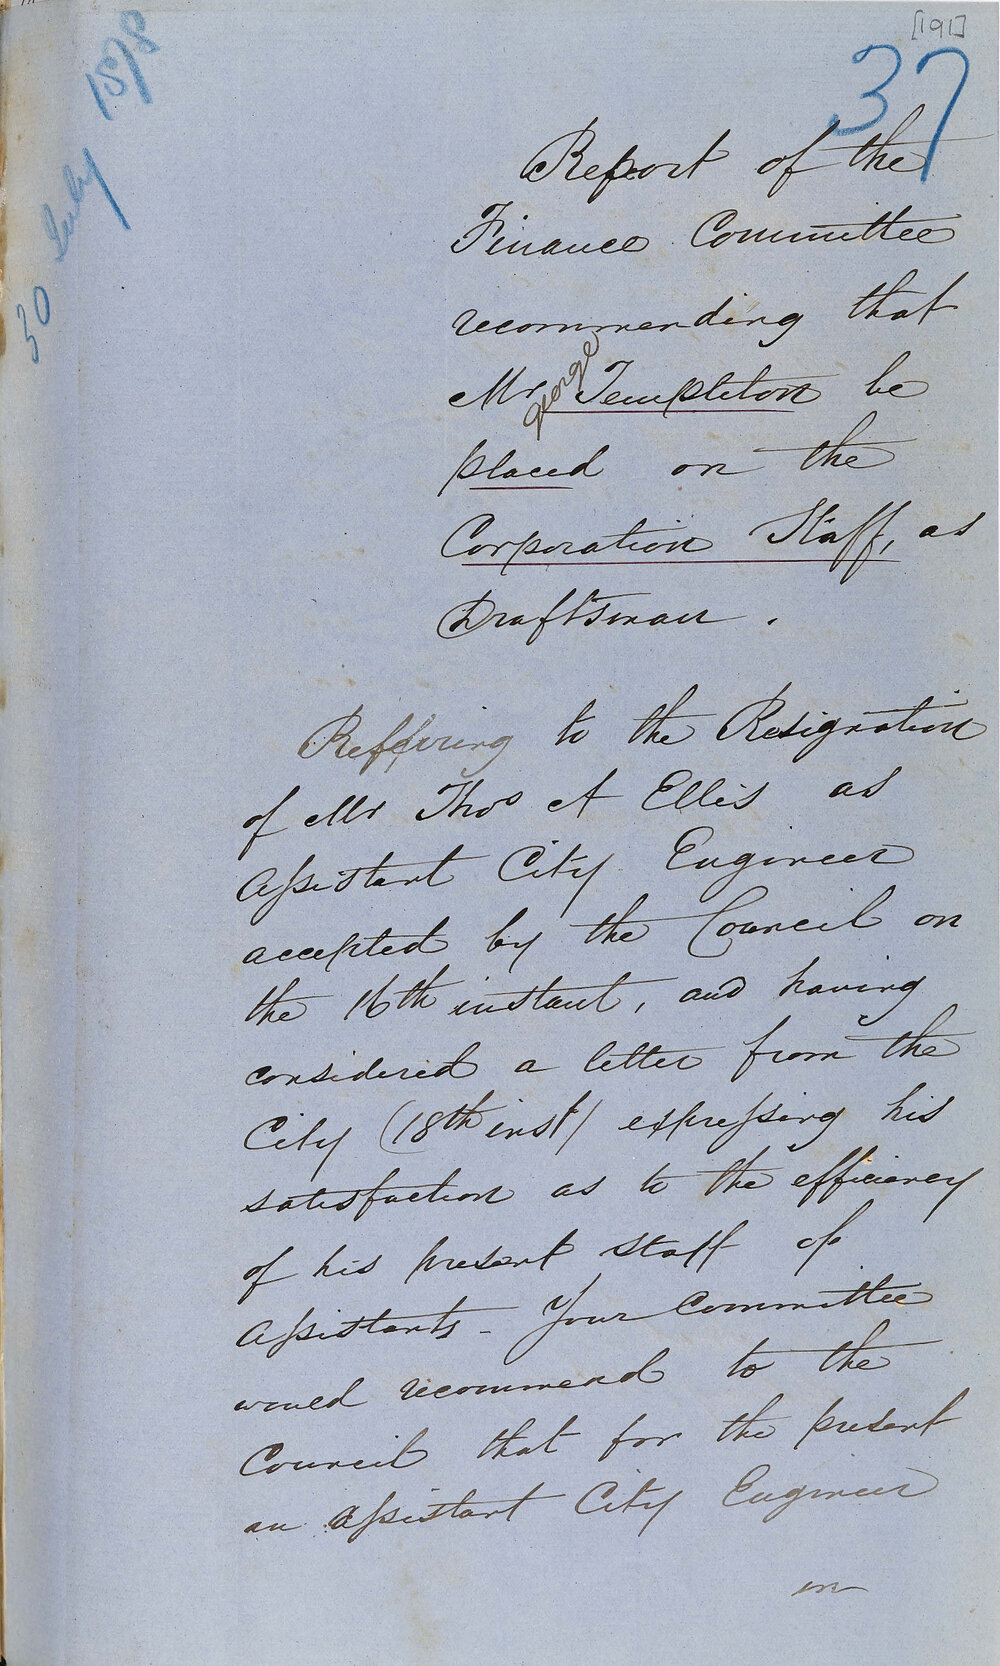 [191]
37
30 July 1878
Report of the
Finance Committee
recommending that
Mr George Templeton be
placed on the
Corporation Staff, as
Draftsman.
Referring to the Resignation
of Mr Thos A Ellis as
Assistant City Engineer
accepted by the Council on
the 16th instant, and having
considered a letter from the
City (18th inst) expressing his
satisfaction as to the efficiency
of his present staff of
Assistants - Your Committee
would recommend to the
Council that for the present
an Assistant City Engineer